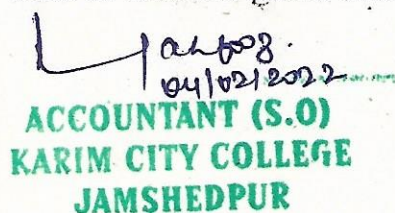 04/02/2022
ACCOUNTANT (S.O)
KARIM CITY COLLEGE
JAMSHEDPUR